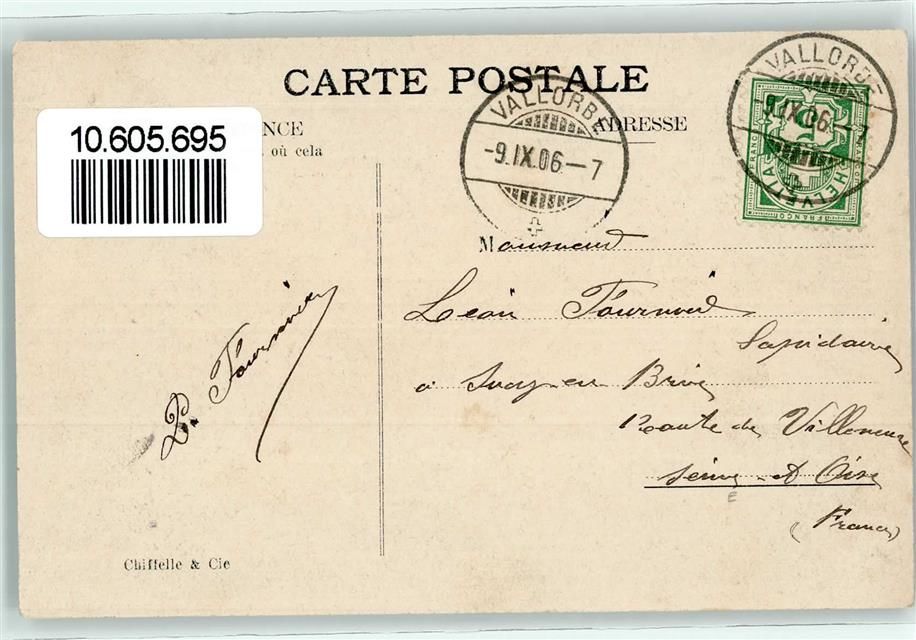 CARTE POSTALE
10.605.695
NCE
ADRESSE
où cela
VALLORBE
-9.IX.06.-7
VALLORBE
9.IX.06.-7
FRANCO
HELVETIA
FRANCO
Monsieur
Léon Fournier
Lapidaire
a Sucy-en Brie
Route de Villeneuve
Seine et Oise
(France)
Fournier
Chiffelle & Cie